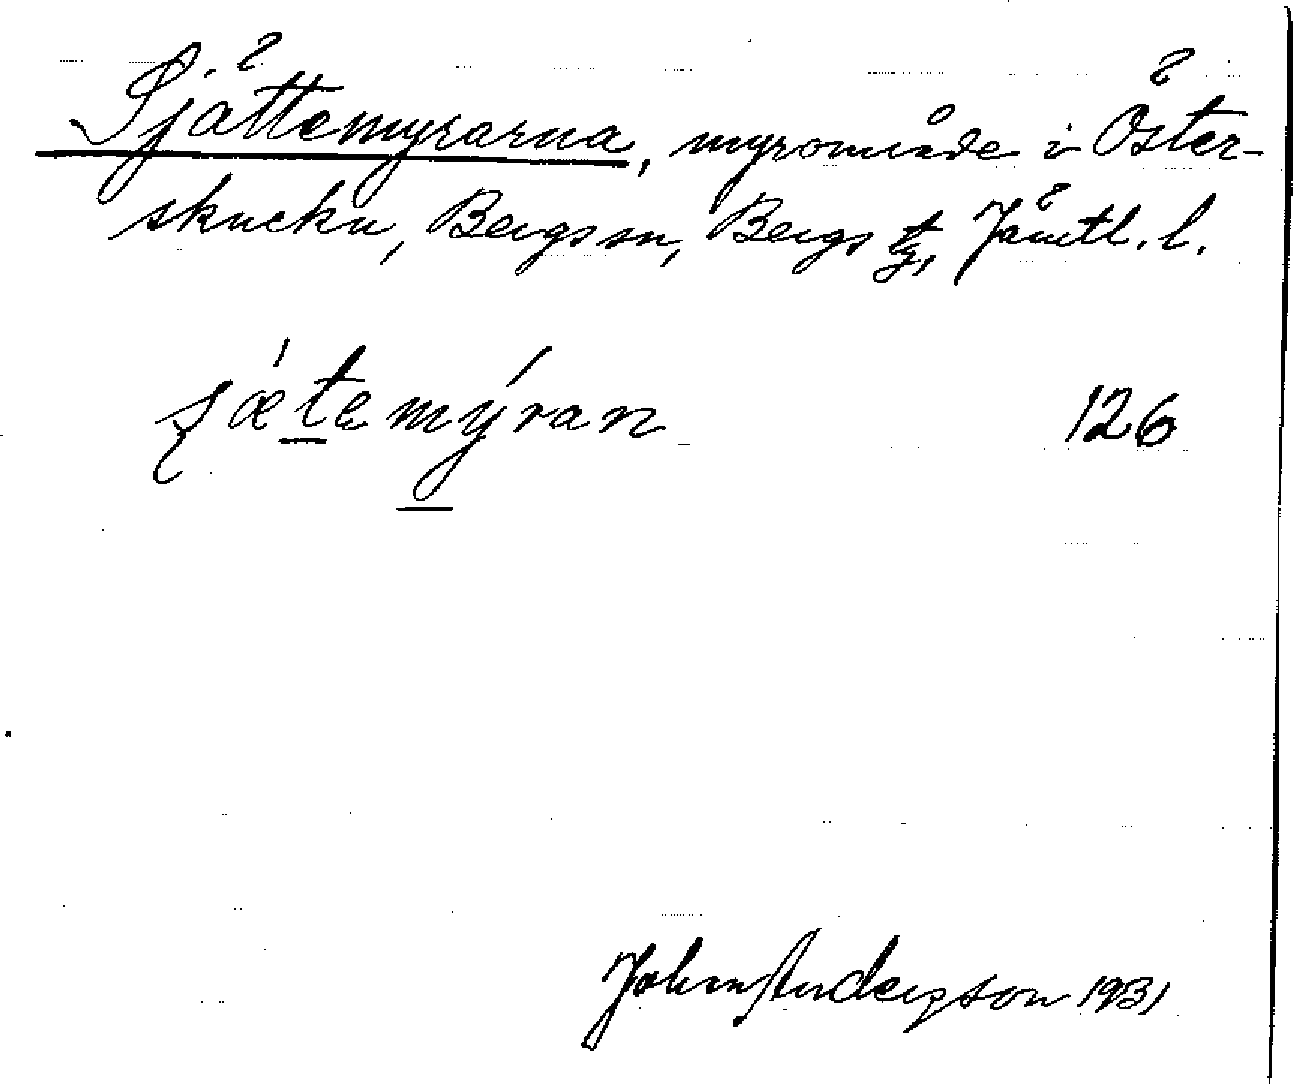 Sjättemyrarna, myrområde i Öster-
skucku, Bergs sn, Bergs tg, Jämtl. l.
ʂǽtemýran 126
John Andersson 1931